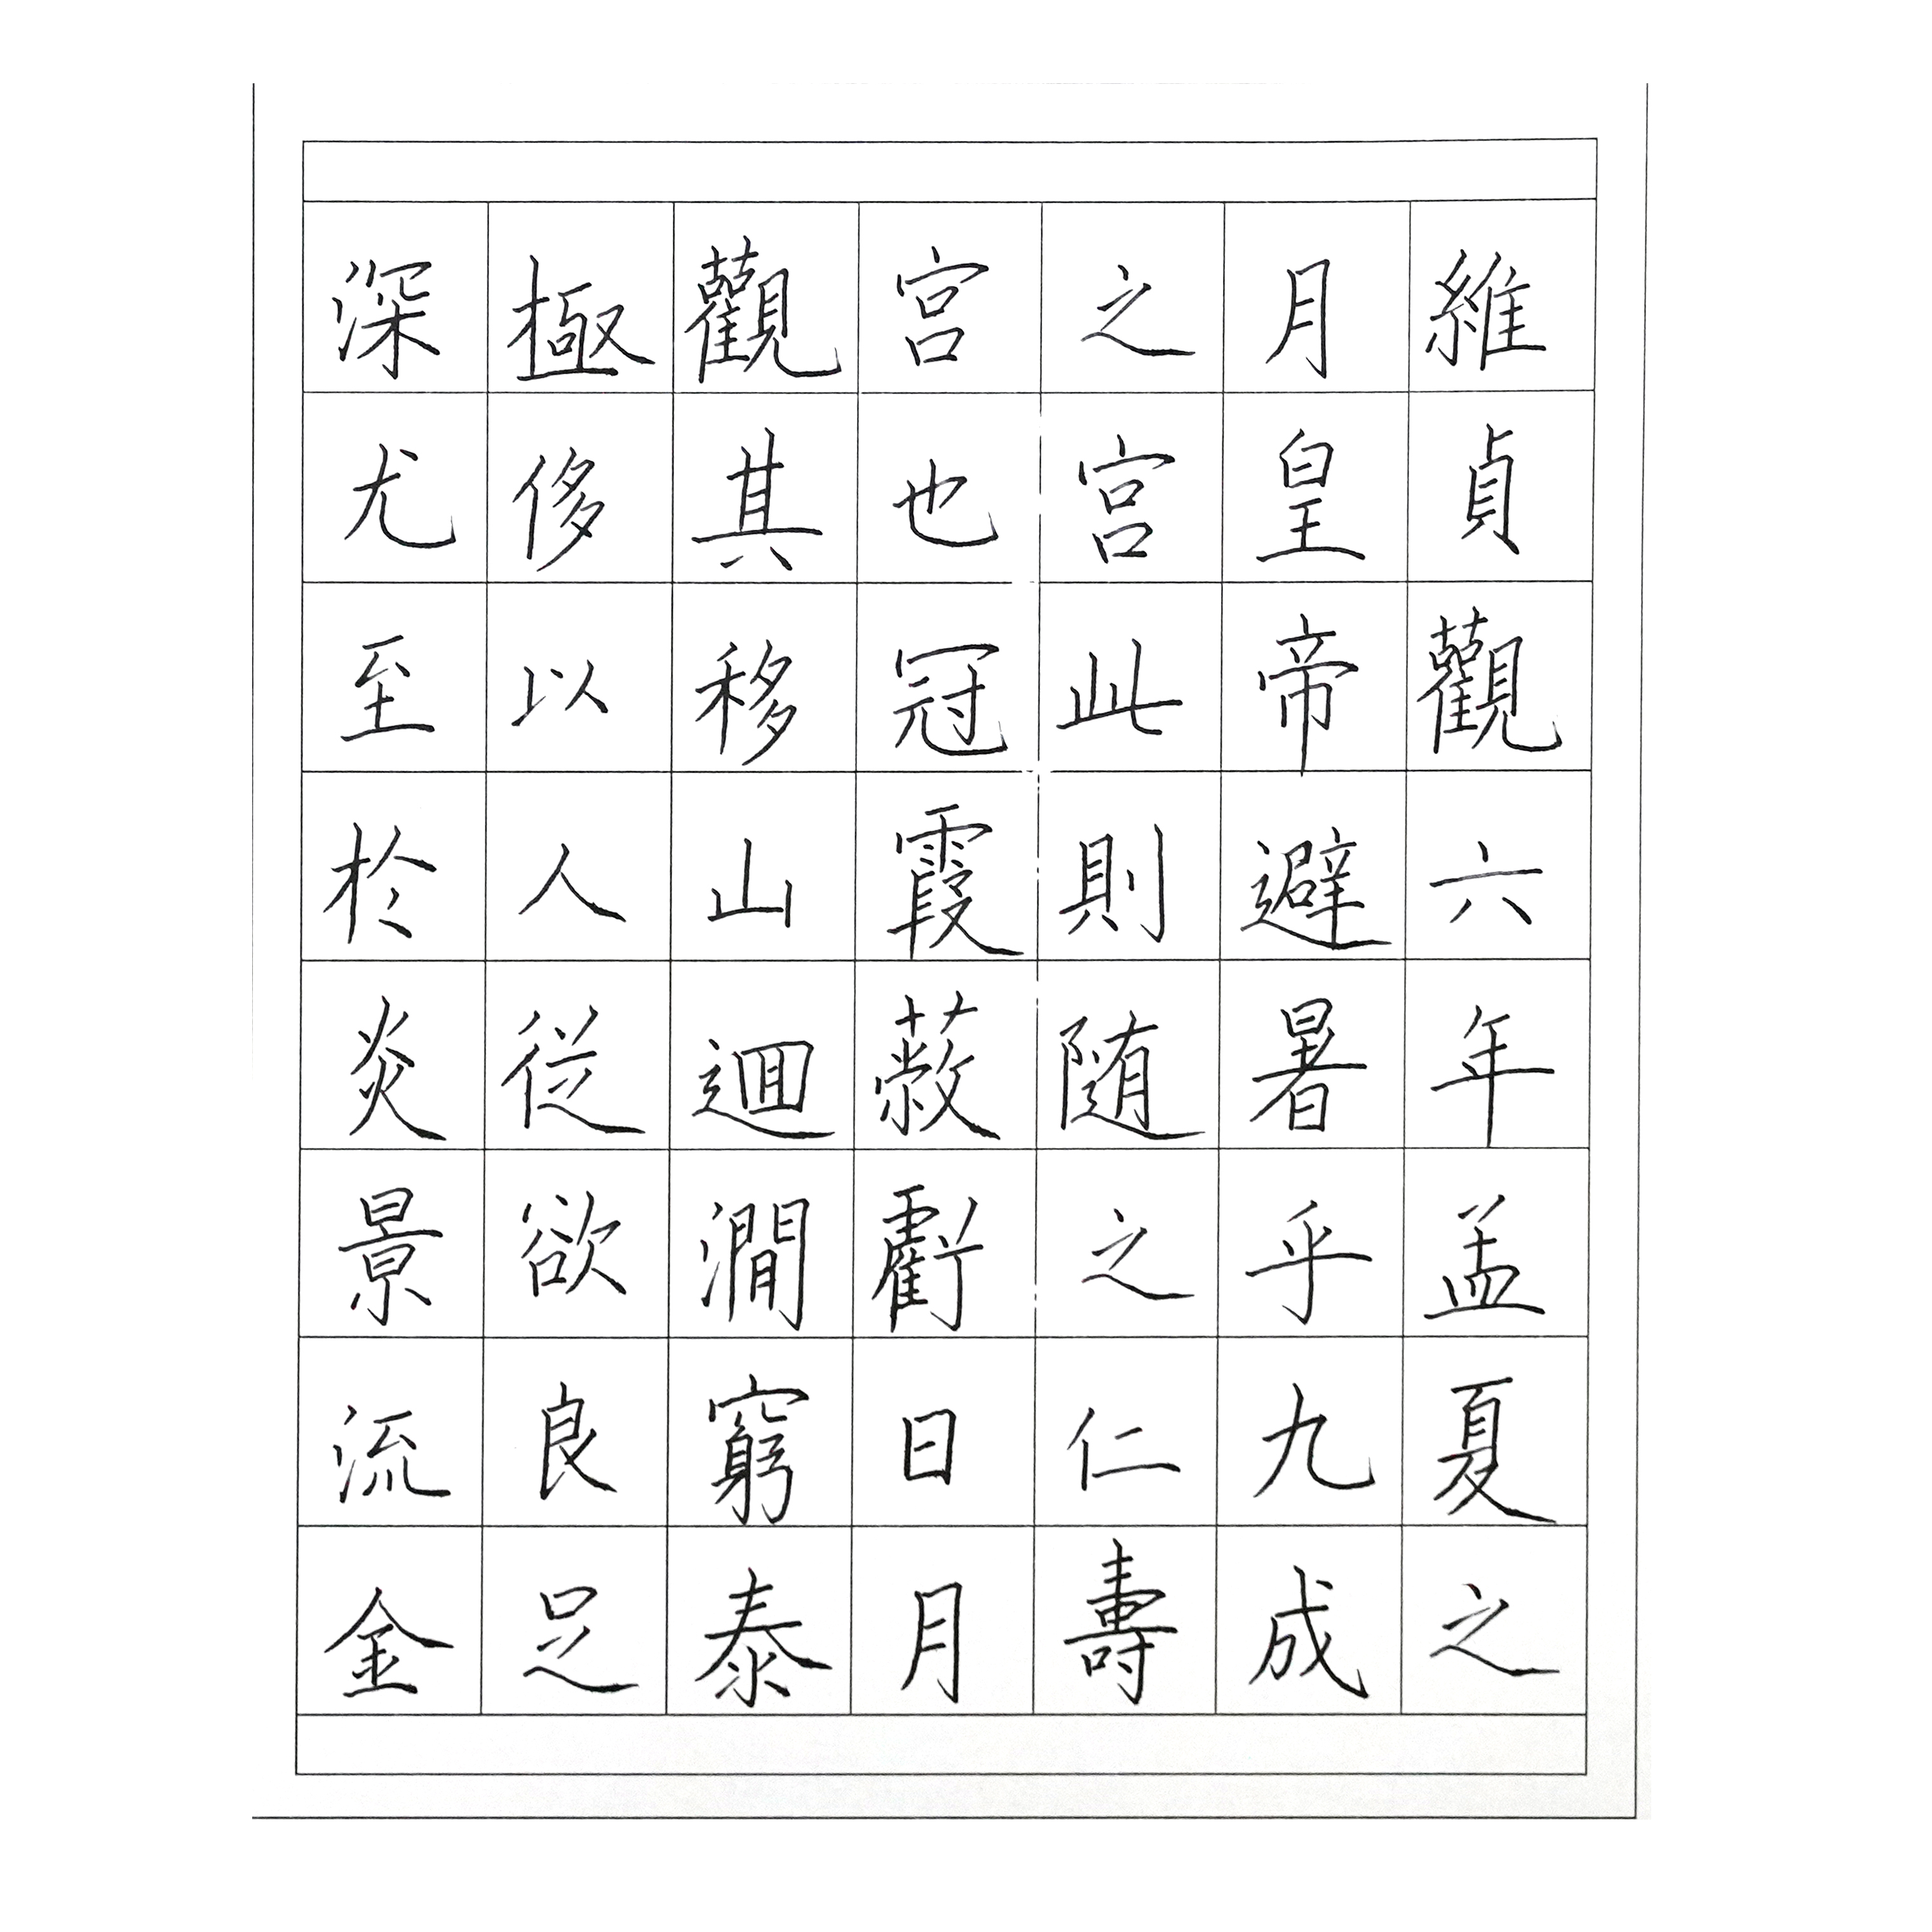 維貞觀六年孟夏之
月皇帝避暑乎九成
之宮此則随之仁壽
宮也冠霞蔽虧日月
觀其移山迴澗窮泰
極侈以人從欲良足
深尤至於炎景流金